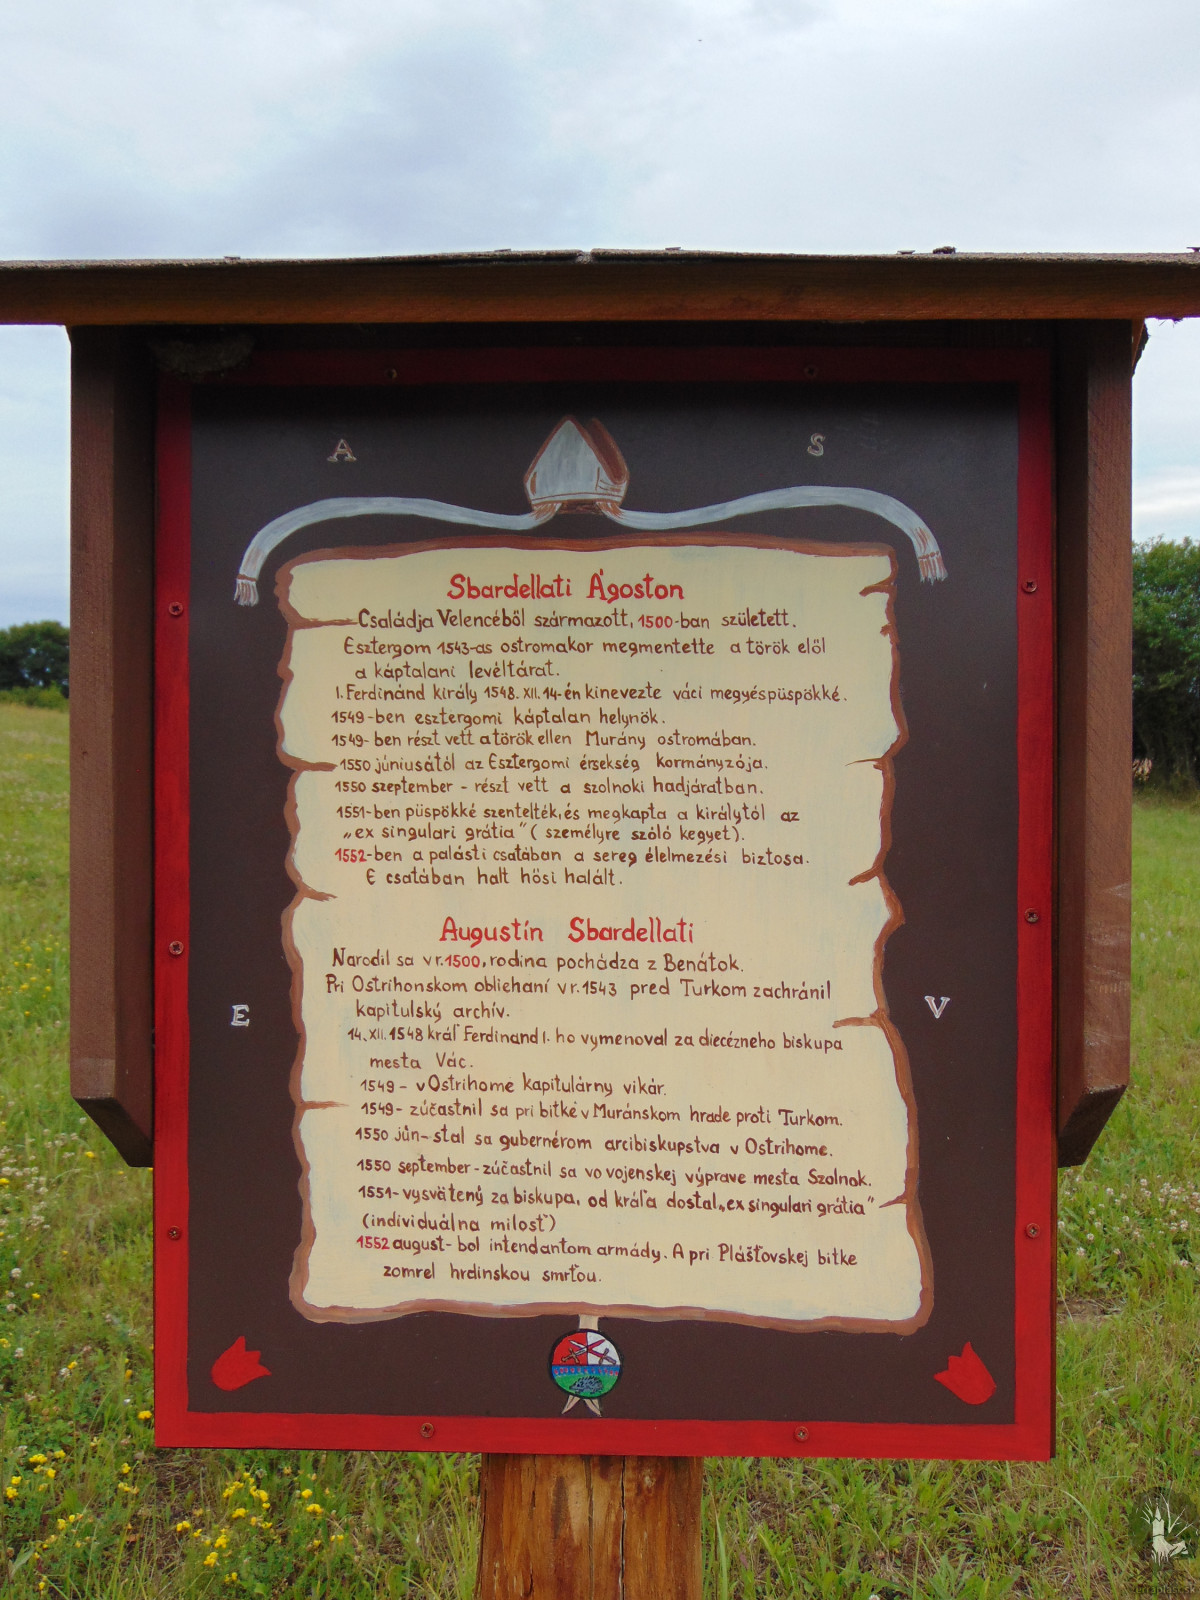 A S
Sbardellati Ágoston
Családja Velencéből származott, 1500-ban született.
Esztergom 1543-as ostromakor megmentette a török elől
a káptalani levéltárat.
I. Ferdinánd király 1548. XII. 14-én kinevezte váci megyéspüspökké.
1549-ben esztergomi káptalan helynök.
1549-ben részt vett a török ellen Murány ostromában.
1550 júniusától az Esztergomi érsekség kormányzója.
1550 szeptember - részt vett a szolnoki hadjáratban.
1551-ben püspökké szentelték, és megkapta a királytól az
„ex singulari grátia" ( személyre szóló kegyet).
1552-ben a palásti csatában a sereg élelmezési biztosa.
E csatában halt hősi halált.
Augustín Sbardellati
Narodil sa v r.1500, rodina pochádza z Benátok.
Pri Ostrihonskom obliehaní v r.1543 pred Turkom zachránil
kapitulský archív.
E V
14. XII. 1548 kráľ Ferdinand I. ho vymenoval za diecézneho biskupa
mesta Vác.
1549 - v Ostrihome kapitulárny vikár.
1549- zúčastnil sa pri bitke v Muránskom hrade proti Turkom.
1550 jún- stal sa gubernérom arcibiskupstva v Ostrihome.
1550 september - zúčastnil sa vo vojenskej výprave mesta Szolnok.
1551- vysvätený za biskupa, od kráľa dostal „ex singulari grátia"
(individuálna milosť)
1552 august- bol intendantom armády. A pri Plášťovskej bitke
zomrel hrdinskou smrťou.